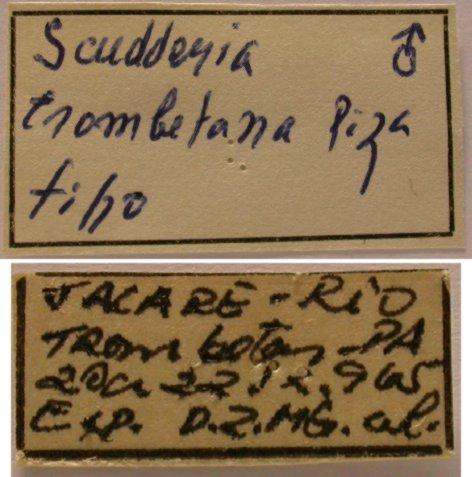 Scudderia ♂
trombetana Piza
tipo
JACARÉ - RIO
TROMbetas - PA
Exp. D.Z.MG. al.